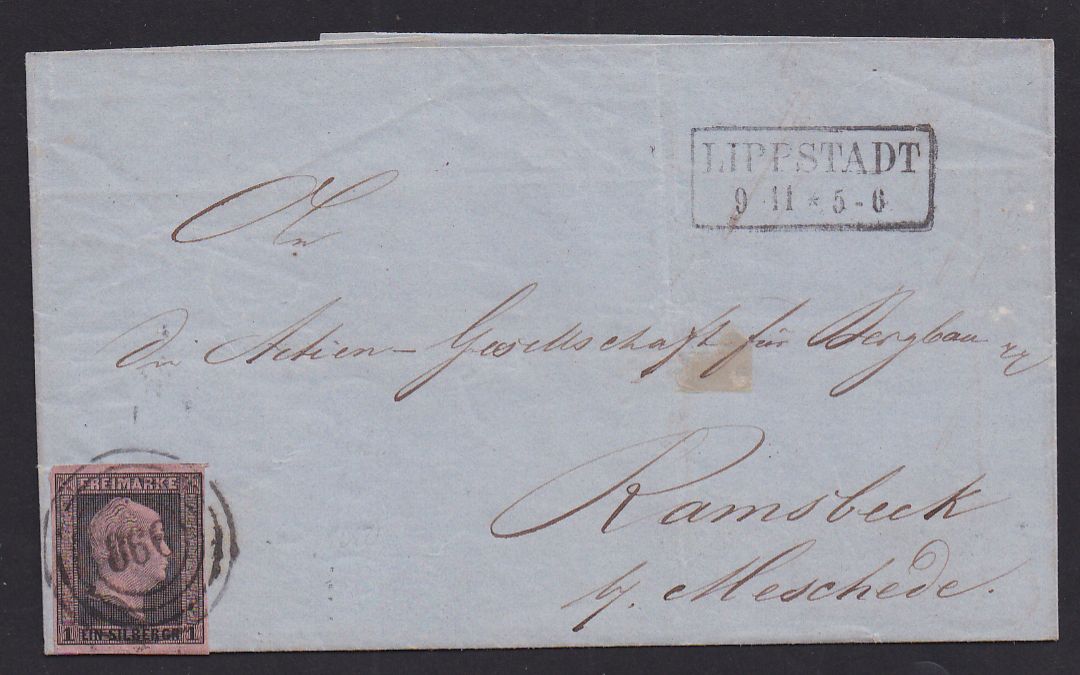 LIPPSTADT
9 11 * 5-6
An
die Actien-Gesellschaft für Bergbau
Ramsbeck
b/. Meschede.
FREIMARKE
1 EIN-SILBERGR 1